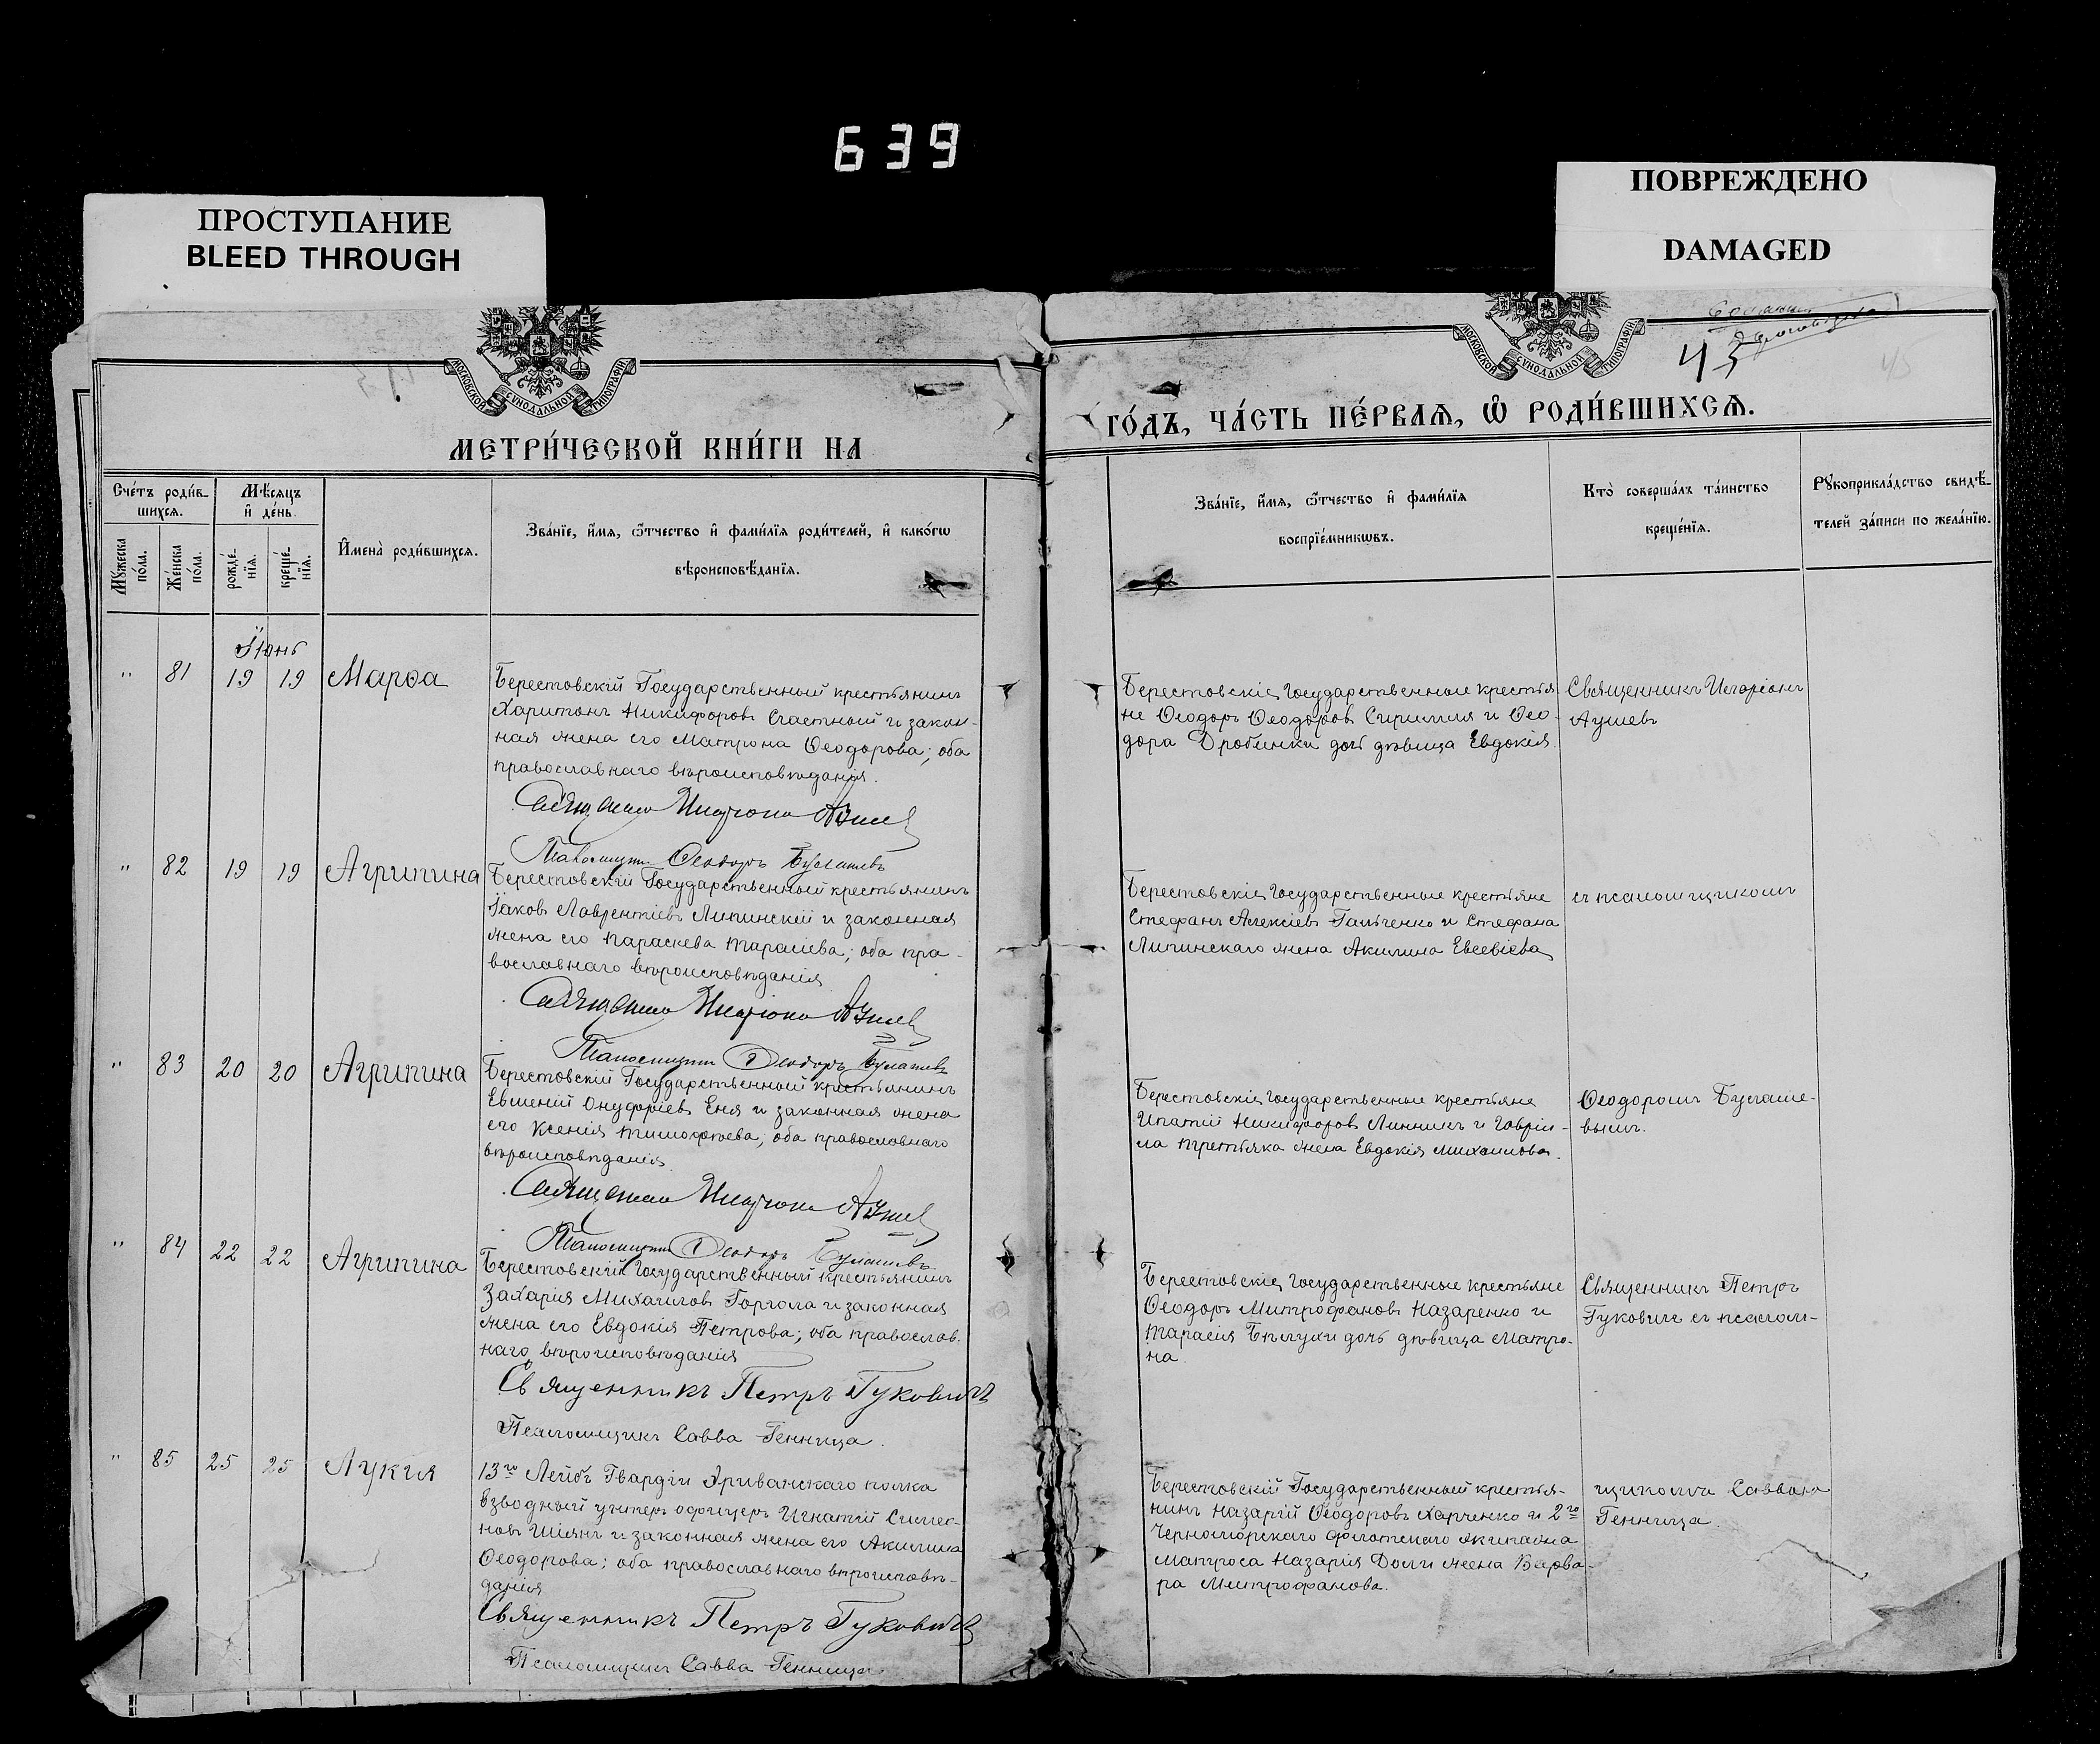 639
ПРОСТУПАНИЕ
BLEED THROUGH
ПОВРЕЖДЕНО
DAMAGED
МОСКОВСКОЙ СѴНОДАЛЬНОЙ ТИПОГРАФІИ
МОСКОВСКОЙ СѴНОДАЛЬНОЙ ТИПОГРАФІИ
43
МЕТРИ́ЧЕСКОЙ КНИ́ГИ НА
ГО́ДЪ, ЧА́СТЬ ПЕ́РВАѦ, Ѽ РОДИ́ВШИХСѦ.
Сче́тъ роди́в-
шихсѧ.
Мꙋ́жеска по́ла.
Же́нска по́ла.
Мѣ́сѧцъ
и҆ де́нь.
рожде́-
нїѧ.
креще́-
нїѧ.
И҆мена̀ роди́вшихсѧ.
Зва́нїе, и҆́мѧ, ѻ҆́тчество и҆ фами́лїѧ роди́телей, и҆ како́гѡ
вѣроисповѣ́данїѧ.
Зва́нїе, и҆́мѧ, ѻ҆́тчество и҆ фами́лїѧ
воспрїе́мникѡвъ.
Кто̀ соверша́лъ та́инство
креще́нїѧ.
Рꙋкоприкла́дство свидѣ́-
телей за́писи по жела́нїю.
Іюнь
" 81 19 19 Марѳа
Берестовскій Государственный крестьянинъ
Харитонъ Никифоровъ Счастный и закон-
ная жена его Матрона Ѳеодорова; оба
православнаго вѣроисповѣданія.
Священникъ Иларіонъ
Псаломщикъ Ѳеодоръ
Берестовскіе Государственные крестья
не Ѳеодоръ Ѳеодоровъ и Ѳео-
дора дочь дѣвица Евдокія.
Священникъ Иларіонъ
" 82 19 19 Агрипина
Берестовскій Государственный крестьянинъ
Іаковъ Лаврентіевъ Липинскій и законная
жена его Параскева Тарасіева; оба пра-
вославнаго вѣроисповѣданія
Священникъ Иларіонъ
Псаломщикъ Ѳеодоръ
Берестовскіе Государственные крестьяне
Стефанъ Алексіевъ Гальченко и Стефана
Липинскаго жена Акилина Евсевіева
съ псаломщикомъ
" 83 20 20 Агрипина
Берестовскій Государственный крестьянинъ
Евменій Онуфріевъ Еня и законная жена
его Ксенія Тимофеева; оба православнаго
вѣроисповѣданія
Священникъ Иларіонъ
Псаломщикъ Ѳеодоръ
Берестовскіе Государственные крестьяне
Ипатій Никифоровъ Линникъ и Гаврии-
ла Третьяка жена Евдокія Михаилова.
Ѳеодоромъ
вымъ.
" 84 22 22 Агрипина
Берестовскій Государственный крестьянинъ
Захарія Михаиловъ Горгола и законная
жена его Евдокія Петрова; оба православ-
наго вѣроисповѣданія
Священникъ Петръ Гуковичъ
Псаломщикъ Савва Генница.
Берестовскіе Государственные крестьяне
Ѳеодоръ Митрофановъ Назаренко и
Тарасія Бѣлухи дочь дѣвица Матро-
на.
Священникъ Петръ
Гуковичъ съ псалом-
" 85 25 25 Лукія
13го Лейбъ Гвардіи Эриванскаго полка
взводный унтеръ офицеръ Игнатій Симео-
новъ Шіянъ и законная жена его Акилина
Ѳеодорова; оба православнаго вѣроисповѣ-
данія
Священникъ Петръ Гуковичъ
Псаломщикъ Савва Генница
Берестовскій Государственный крестья-
нинъ Назарій Ѳеодоровъ Харченко и 2го
Черноморскаго флотскаго экипажа
матроса Назарія Доли жена Варва-
ра Митрофанова.
щикомъ Саввою
Генница.